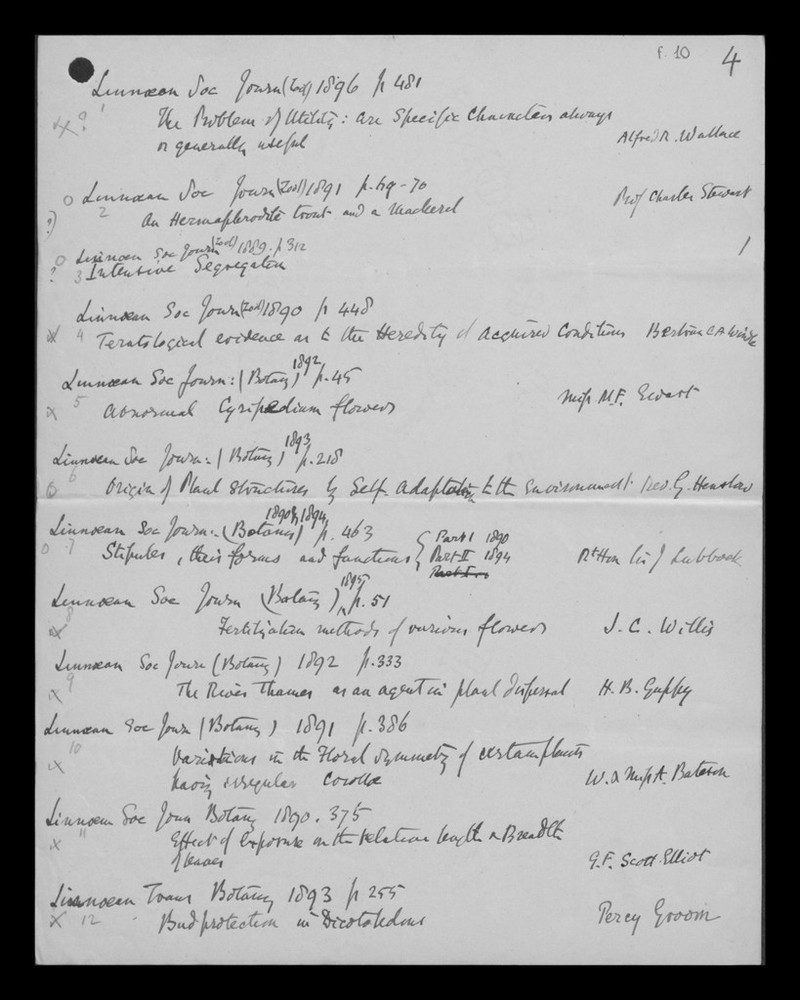 f. 10 4
Linnæan Soc Journ (Zool) 1896 p 481
x ? 1 The Problem of Utility: are Specific Characters always
or generally useful Alfred R. Wallace
o Linnæan Soc Journ (Zool) 1891 p. 69-70 Prof Charles Stewart
?) 2 An Hermaphrodite trout and a Mackerel
o Linnæan Soc Journ (Zool) 1889. p 312 1
? 3 Intensive Segregation
Linnæan Soc Journ (Zool) 1890 p 448
x 4 Teratological evidence as to the Heredity of acquired Conditions Bertram C A Windle
Linnæan Soc Journ: (Botany) 1892 p. 45
x 5 Abnormal Cypripedium flowers Miss M.F. Ewart
Linnæan Soc Journ: (Botany) 1893 p. 218
o 6 Origin of Plant Structures by Self-adaptation to the environment Rev. G. Henslow
Linnæan Soc Journ: (Botany) 1890 & 1894 p. 463
o 7 Stipules, their forms and functions { Part I 1890
Part II 1894 Rt Hon Sir J Lubbock
Linnæan Soc Journ (Botany) 1895 p. 51
x 8 Fertilization methods of various flowers J. C. Willis
Linnæan Soc Journ (Botany) 1892 p. 333
x 9 The River Thames as an agent in plant dispersal H. B. Guppy
Linnæan Soc Journ (Botany) 1891 p. 386
x 10 Variations in the Floral Symmetry of certain plants
having irregular Corollæ W. & Miss A. Bateson
Linnæan Soc Journ Botany 1890. 375
x 11 Effect of Exposure on the relative length & Breadth
of leaves G.F. Scott-Elliot
Linnæan Trans Botany 1893 p 255
x 12 Bud protection in Dicotyledons Percy Groom